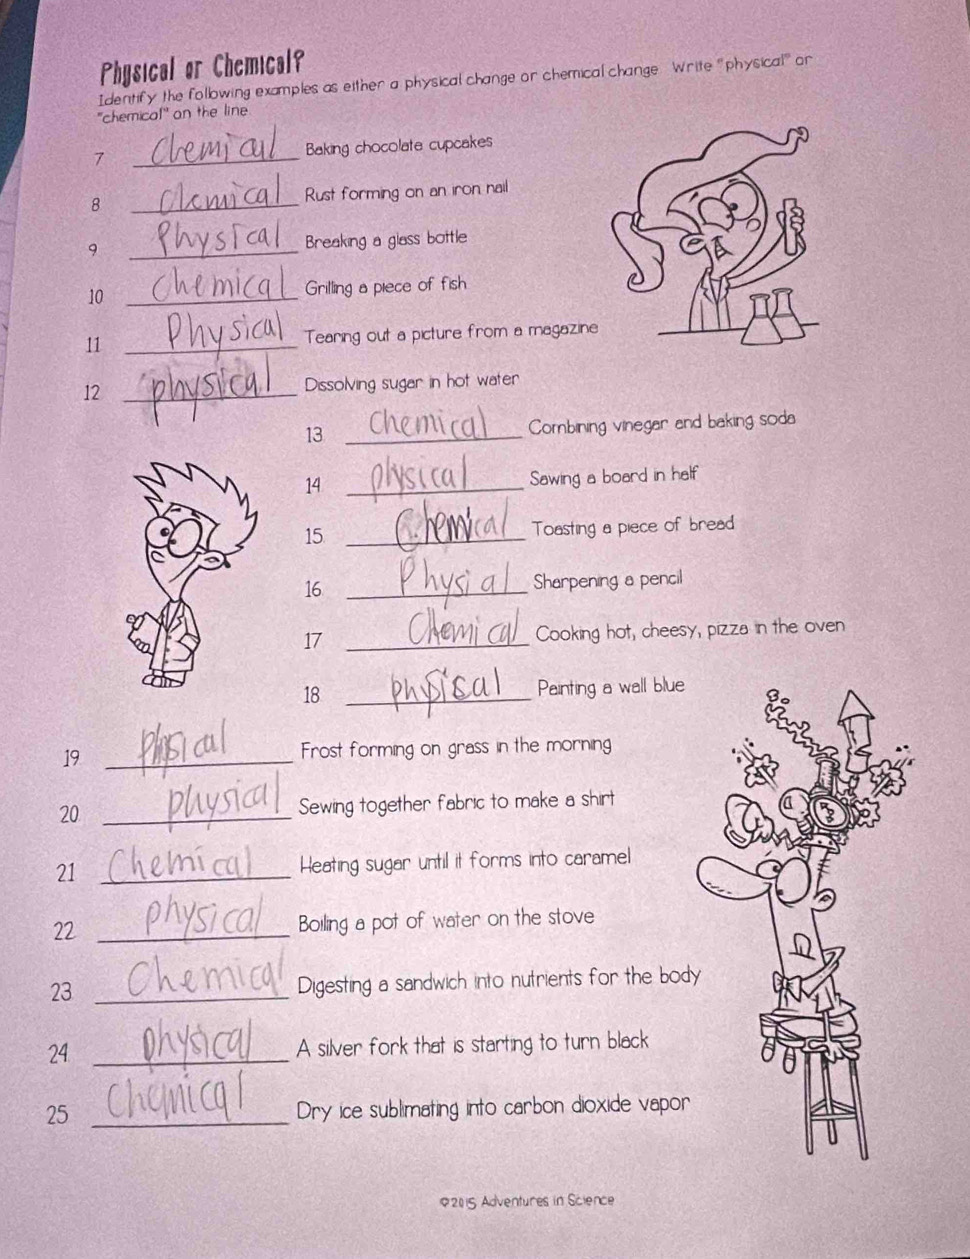 Physical or Chemical?
Identify the following examples as either a physical change or chemical change. Write "physical" or
"chemical" on the line.
7 Chemical Baking chocolate cupcakes
8 Chemical Rust forming on an iron nail
9 Physical Breaking a glass bottle
10 Chemical Grilling a piece of fish
11 Physical Tearing out a picture from a magazine
12 physical Dissolving sugar in hot water
13 Chemical Combining vinegar and baking soda
14 physical Sawing a board in half
15 Chemical Toasting a piece of bread
16 Physial Sharpening a pencil
17 Chemical Cooking hot, cheesy, pizza in the oven
18 physical Painting a wall blue
19 physical Frost forming on grass in the morning
20 physical Sewing together fabric to make a shirt
21 Chemical Heating sugar until it forms into caramel
22 physical Boiling a pot of water on the stove
23 Chemical Digesting a sandwich into nutrients for the body
24 physical A silver fork that is starting to turn black
25 Chemical Dry ice sublimating into carbon dioxide vapor
©2015 Adventures in Science